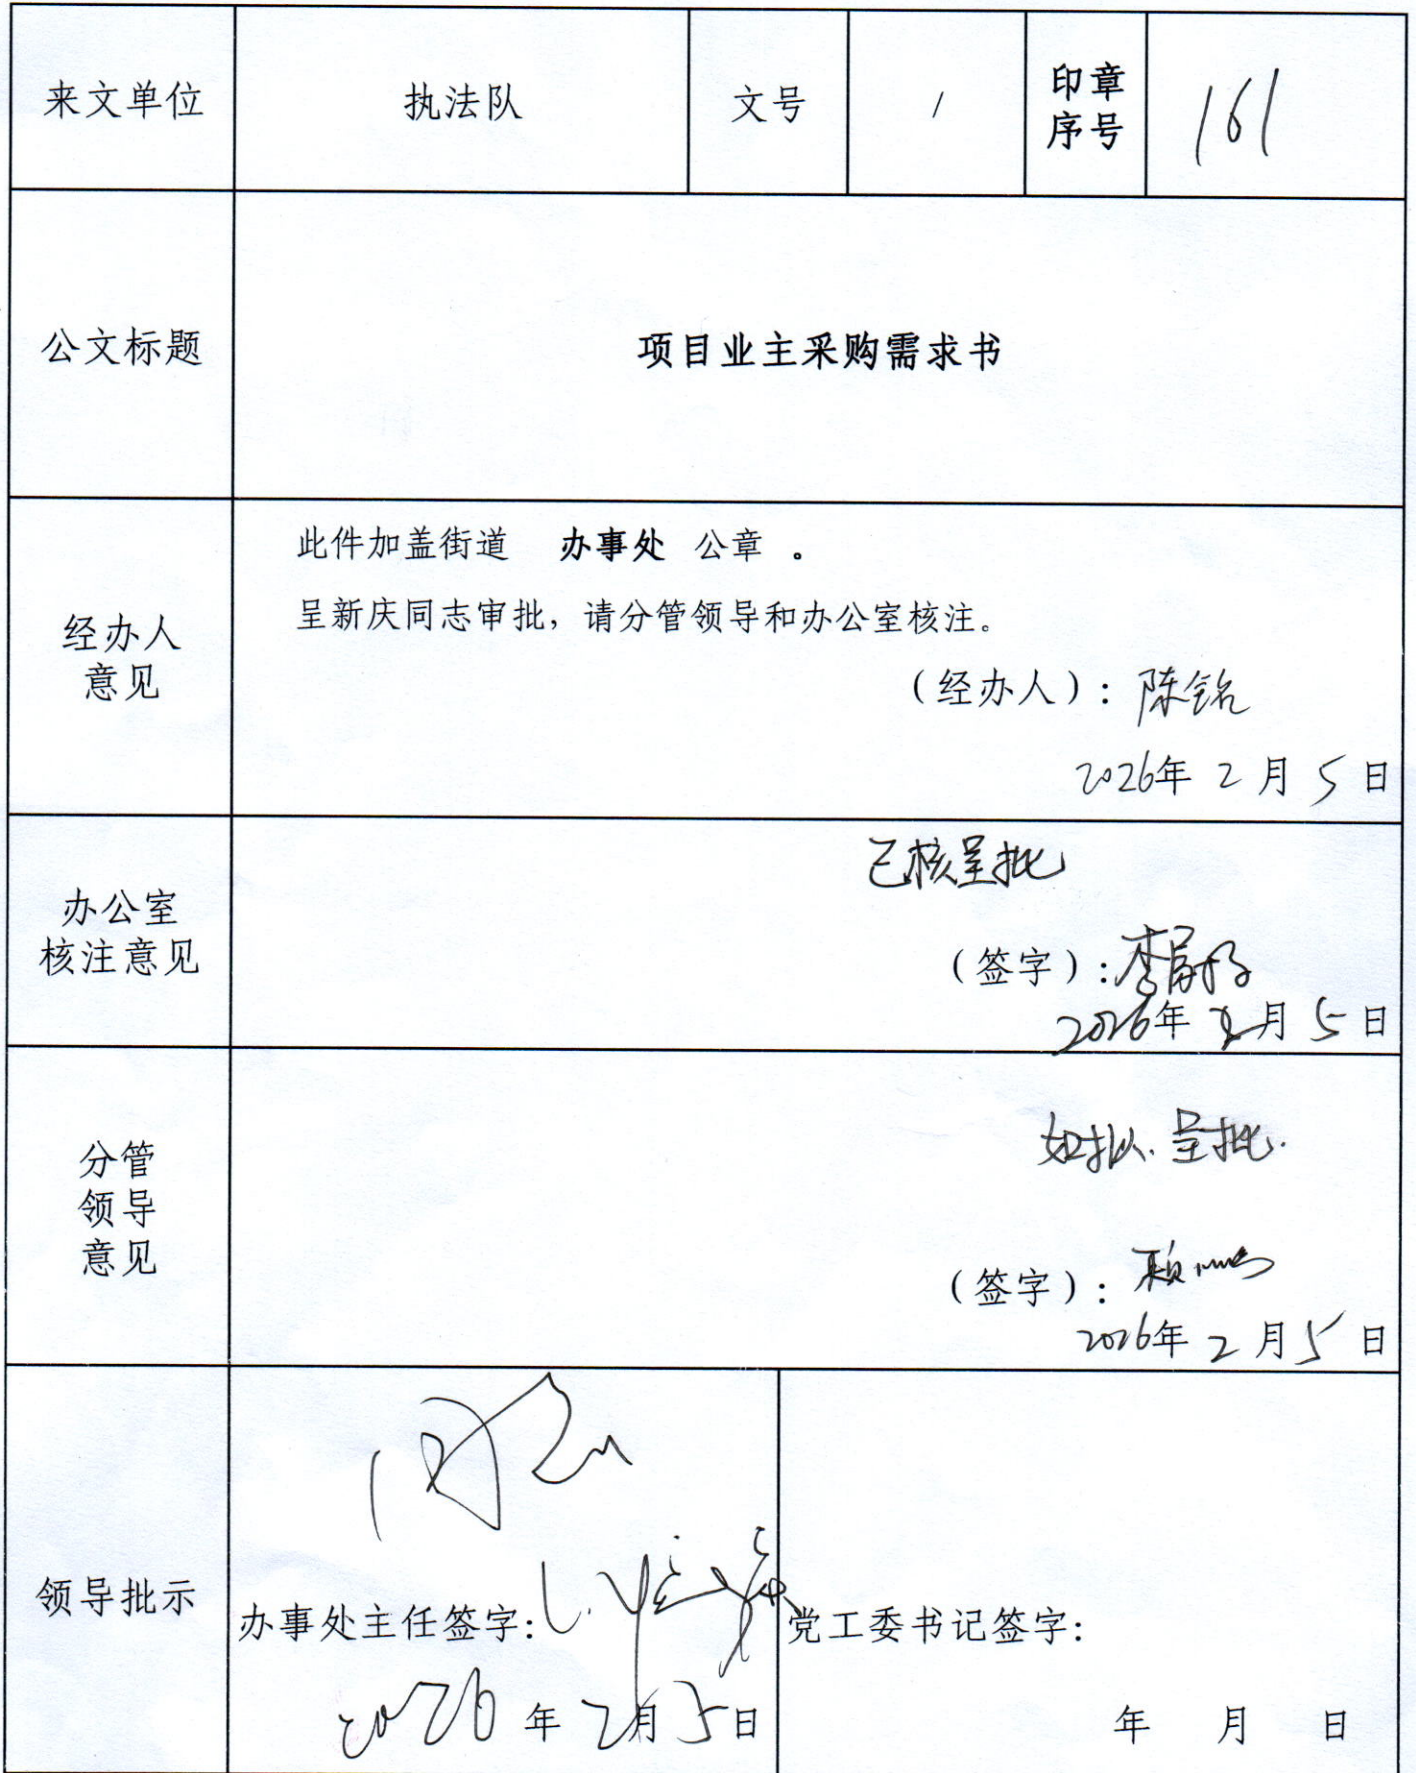 来文单位 执法队 文号 / 印章序号 161
公文标题 项目业主采购需求书
经办人
意见
此件加盖街道 办事处 公章 。
呈新庆同志审批，请分管领导和办公室核注。
（经办人）：陈铭
2026年 2 月 5 日
办公室
核注意见
已核呈批
（签字）：李
2026年 2月 5 日
分管
领导
意见
如拟.呈批.
（签字）：赖
2026年 2 月 5 日
领导批示
同意
办事处主任签字：
2026 年 2月 5日
党工委书记签字：
年 月 日